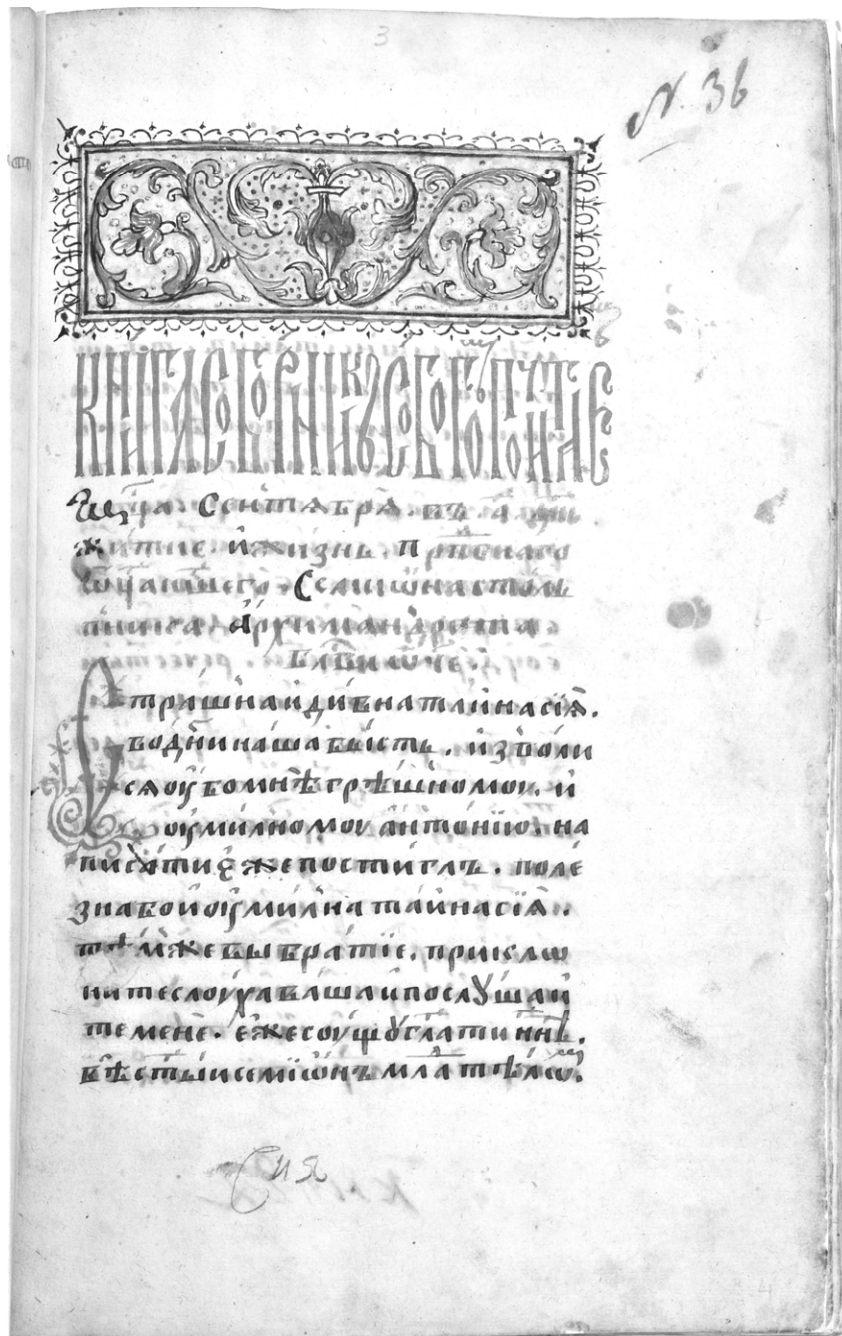 3
N. 36
КНИГА СОБОРНИКЪ СЪ БОГОМЪ ПОЧИНАЕ
Мц҃а. Сентѧбрѧ. въ. а҃ дн҃ь.
житие. и҆ жизнь. Прпⷣбнаго
ѡ҃ца нш҃его. Семиѡна столь
пника, А҆рхимандрита.
Бл҃гви ѡ҃че.
Страшнаи҆ дивна таи҆на сїѧ҆.
во дн҃и наша бысть. и҆зволи
сѧ оу҆бо мнѣ грѣшномоу. и҆
оу҆милномоу а҆нтонїю. на
писати є҆же постигъ. поле
зна бо и҆ оу҆милна таи҆на сїѧ҆.
тѣмже вы братїе. приклѡ
ните слоуха ваша и҆ послꙋшаи҆
те мене. є҆же соущꙋ сл҃ати и҆ нн҃ѣ.
бѣ ст҃ыи семїѡнъ млⷣа тѣлѡⷨ.
Сия